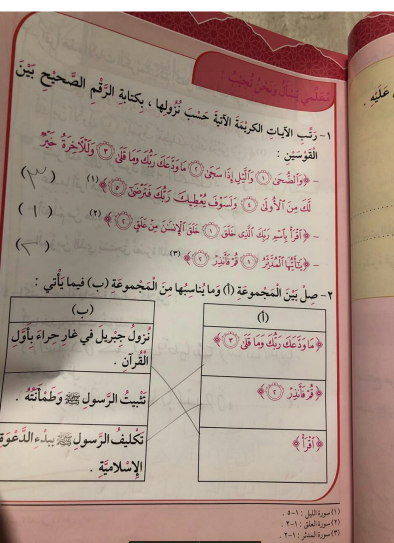 مُعَلِّمي يَسْأَلُ وَنَحْنُ نُجيبُ :
١- رَتِّبِ الآياتِ الكَريمَةَ الآتِيَةَ حَسَبَ نُزُولِها ، بِكِتابَةِ الرَّقْمِ الصَّحيحِ بَيْنَ
القَوْسَيْنِ :
- ﴿وَٱلضُّحَىٰ ١ وَٱلَّيْلِ إِذَا سَجَىٰ ٢ مَا وَدَّعَكَ رَبُّكَ وَمَا قَلَىٰ ٣ وَلَلْآخِرَةُ خَيْرٌ
لَّكَ مِنَ ٱلْأُولَىٰ ٤ وَلَسَوْفَ يُعْطِيكَ رَبُّكَ فَتَرْضَىٰ ٥﴾ (١) (٣)
- ﴿ٱقْرَأْ بِٱسْمِ رَبِّكَ ٱلَّذِى خَلَقَ ١ خَلَقَ ٱلْإِنسَٰنَ مِنْ عَلَقٍ ٢﴾ (٢) (١)
- ﴿يَٰٓأَيُّهَا ٱلْمُدَّثِّرُ ١ قُمْ فَأَنذِرْ ٢﴾ (٣) (٢)
٢- صِلْ بَيْنَ المَجْموعَةِ (أ) وَما يُناسِبُها مِنَ المَجْموعَةِ (ب) فيما يَأْتي :
(أ) (ب)
﴿مَا وَدَّعَكَ رَبُّكَ وَمَا قَلَىٰ ٣﴾ نُزولُ جِبْريلَ في غارِ حِراءَ بِأَوَّلِ
القُرْآنِ .
﴿قُمْ فَأَنذِرْ ٢﴾ تَثْبيتُ الرَّسولِ ﷺ وَطَمْأَنَتُهُ .
﴿ٱقْرَأْ﴾ تَكْليفُ الرَّسولِ ﷺ بِبَدْءِ الدَّعْوَةِ
الإِسْلاميَّةِ .
(١) سورة الليل : ١-٥ .
(٢) سورة العلق : ١-٢ .
(٣) سورة المدثر : ١-٢ .
عَلَيْهِ .